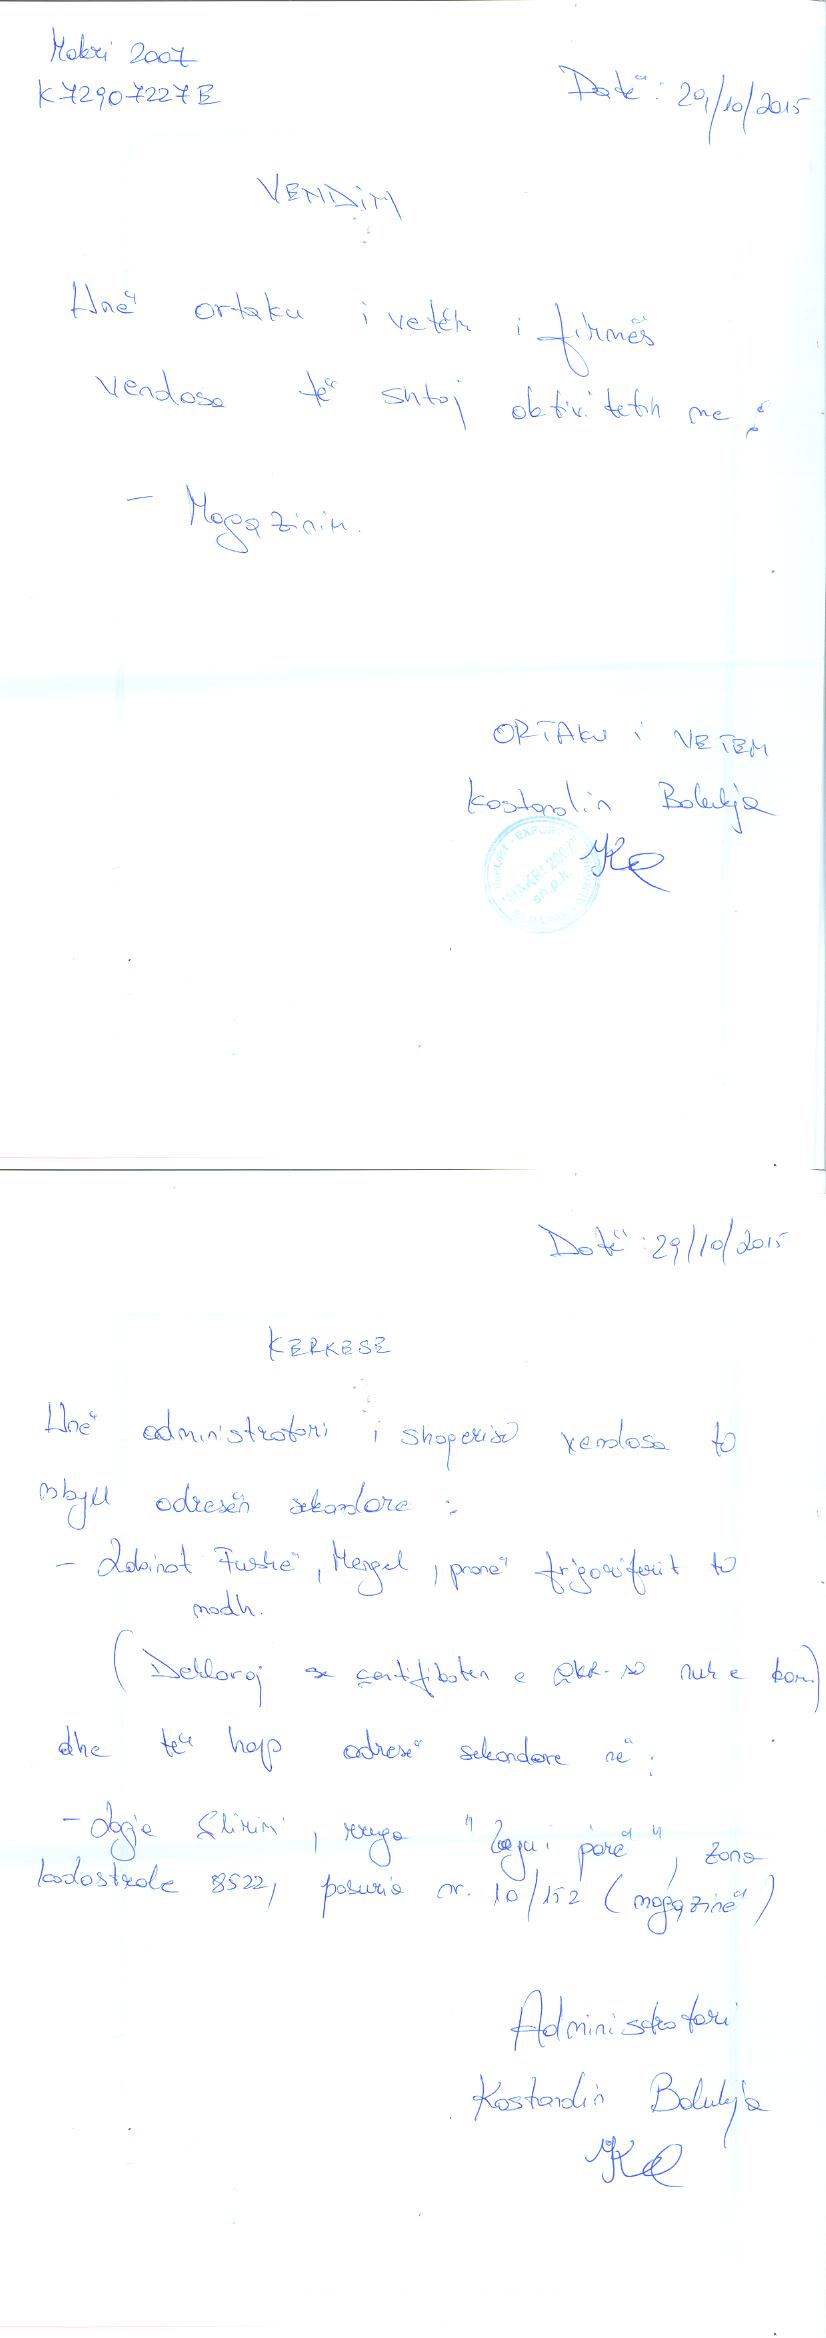 Makri 2007
K72907227E
Datë: 29/10/2015
VENDIM
Unë ortaku i vetëm i firmës
vendosa të shtoj aktivitetin me:
- Magazinim.
ORTAKU I VETEM
Kostandin Balukja
IMPORT - EXPORT
"MAKRI 2007"
sh.p.k.
ELBASAN
Datë: 29/10/2015
KERKESE
Unë administratori i shoqerisë vendosa të
mbyll adresën sekondare:
- Labinot Fushë, Mengel, pranë frigoriferit të
madh.
(Deklaroj se çertifikaten e QKR-së nuk e kam)
dhe të hap adresë sekondare në:
- Lagja Çlirimi, rruga " i parë", zona
kadastrale 8522, pasuria nr. 10/152 (magazinë)
Administratori
Kostandin Balukja